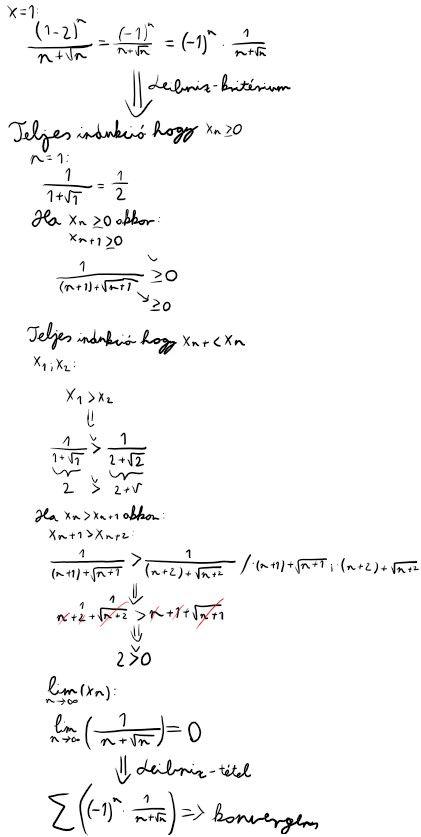 x=1:
(1-2)^n / (n+√n) = (-1)^n / (n+√n) = (-1)^n · 1/(n+√n)
⇓ Leibniz-kritérium
Teljes indukció hogy x_n ≥ 0
n=1:
1/(1+√1) = 1/2
Ha x_n ≥ 0 akkor:
x_{n+1} ≥ 0
1/((n+1)+√(n+1)) ≥ 0
↘ ≥ 0
Teljes indukció hogy x_{n+} < x_n
x_1; x_2:
x_1 > x_2
⇓
1/(1+√1) > 1/(2+√2)
2 > 2+√
Ha x_n > x_{n+1} akkor:
x_{n+1} > x_{n+2}:
1/((n+1)+√(n+1)) > 1/((n+2)+√(n+2)) / ·(n+1)+√(n+1); ·(n+2)+√(n+2)
⇓
n+2+√(n+2) > n+1+√(n+1)
⇓
2 > 0
lim_{n→∞} (x_n):
lim_{n→∞} (1/(n+√n)) = 0
⇓ Leibniz-tétel
∑ ((-1)^n · 1/(n+√n)) => konvergens